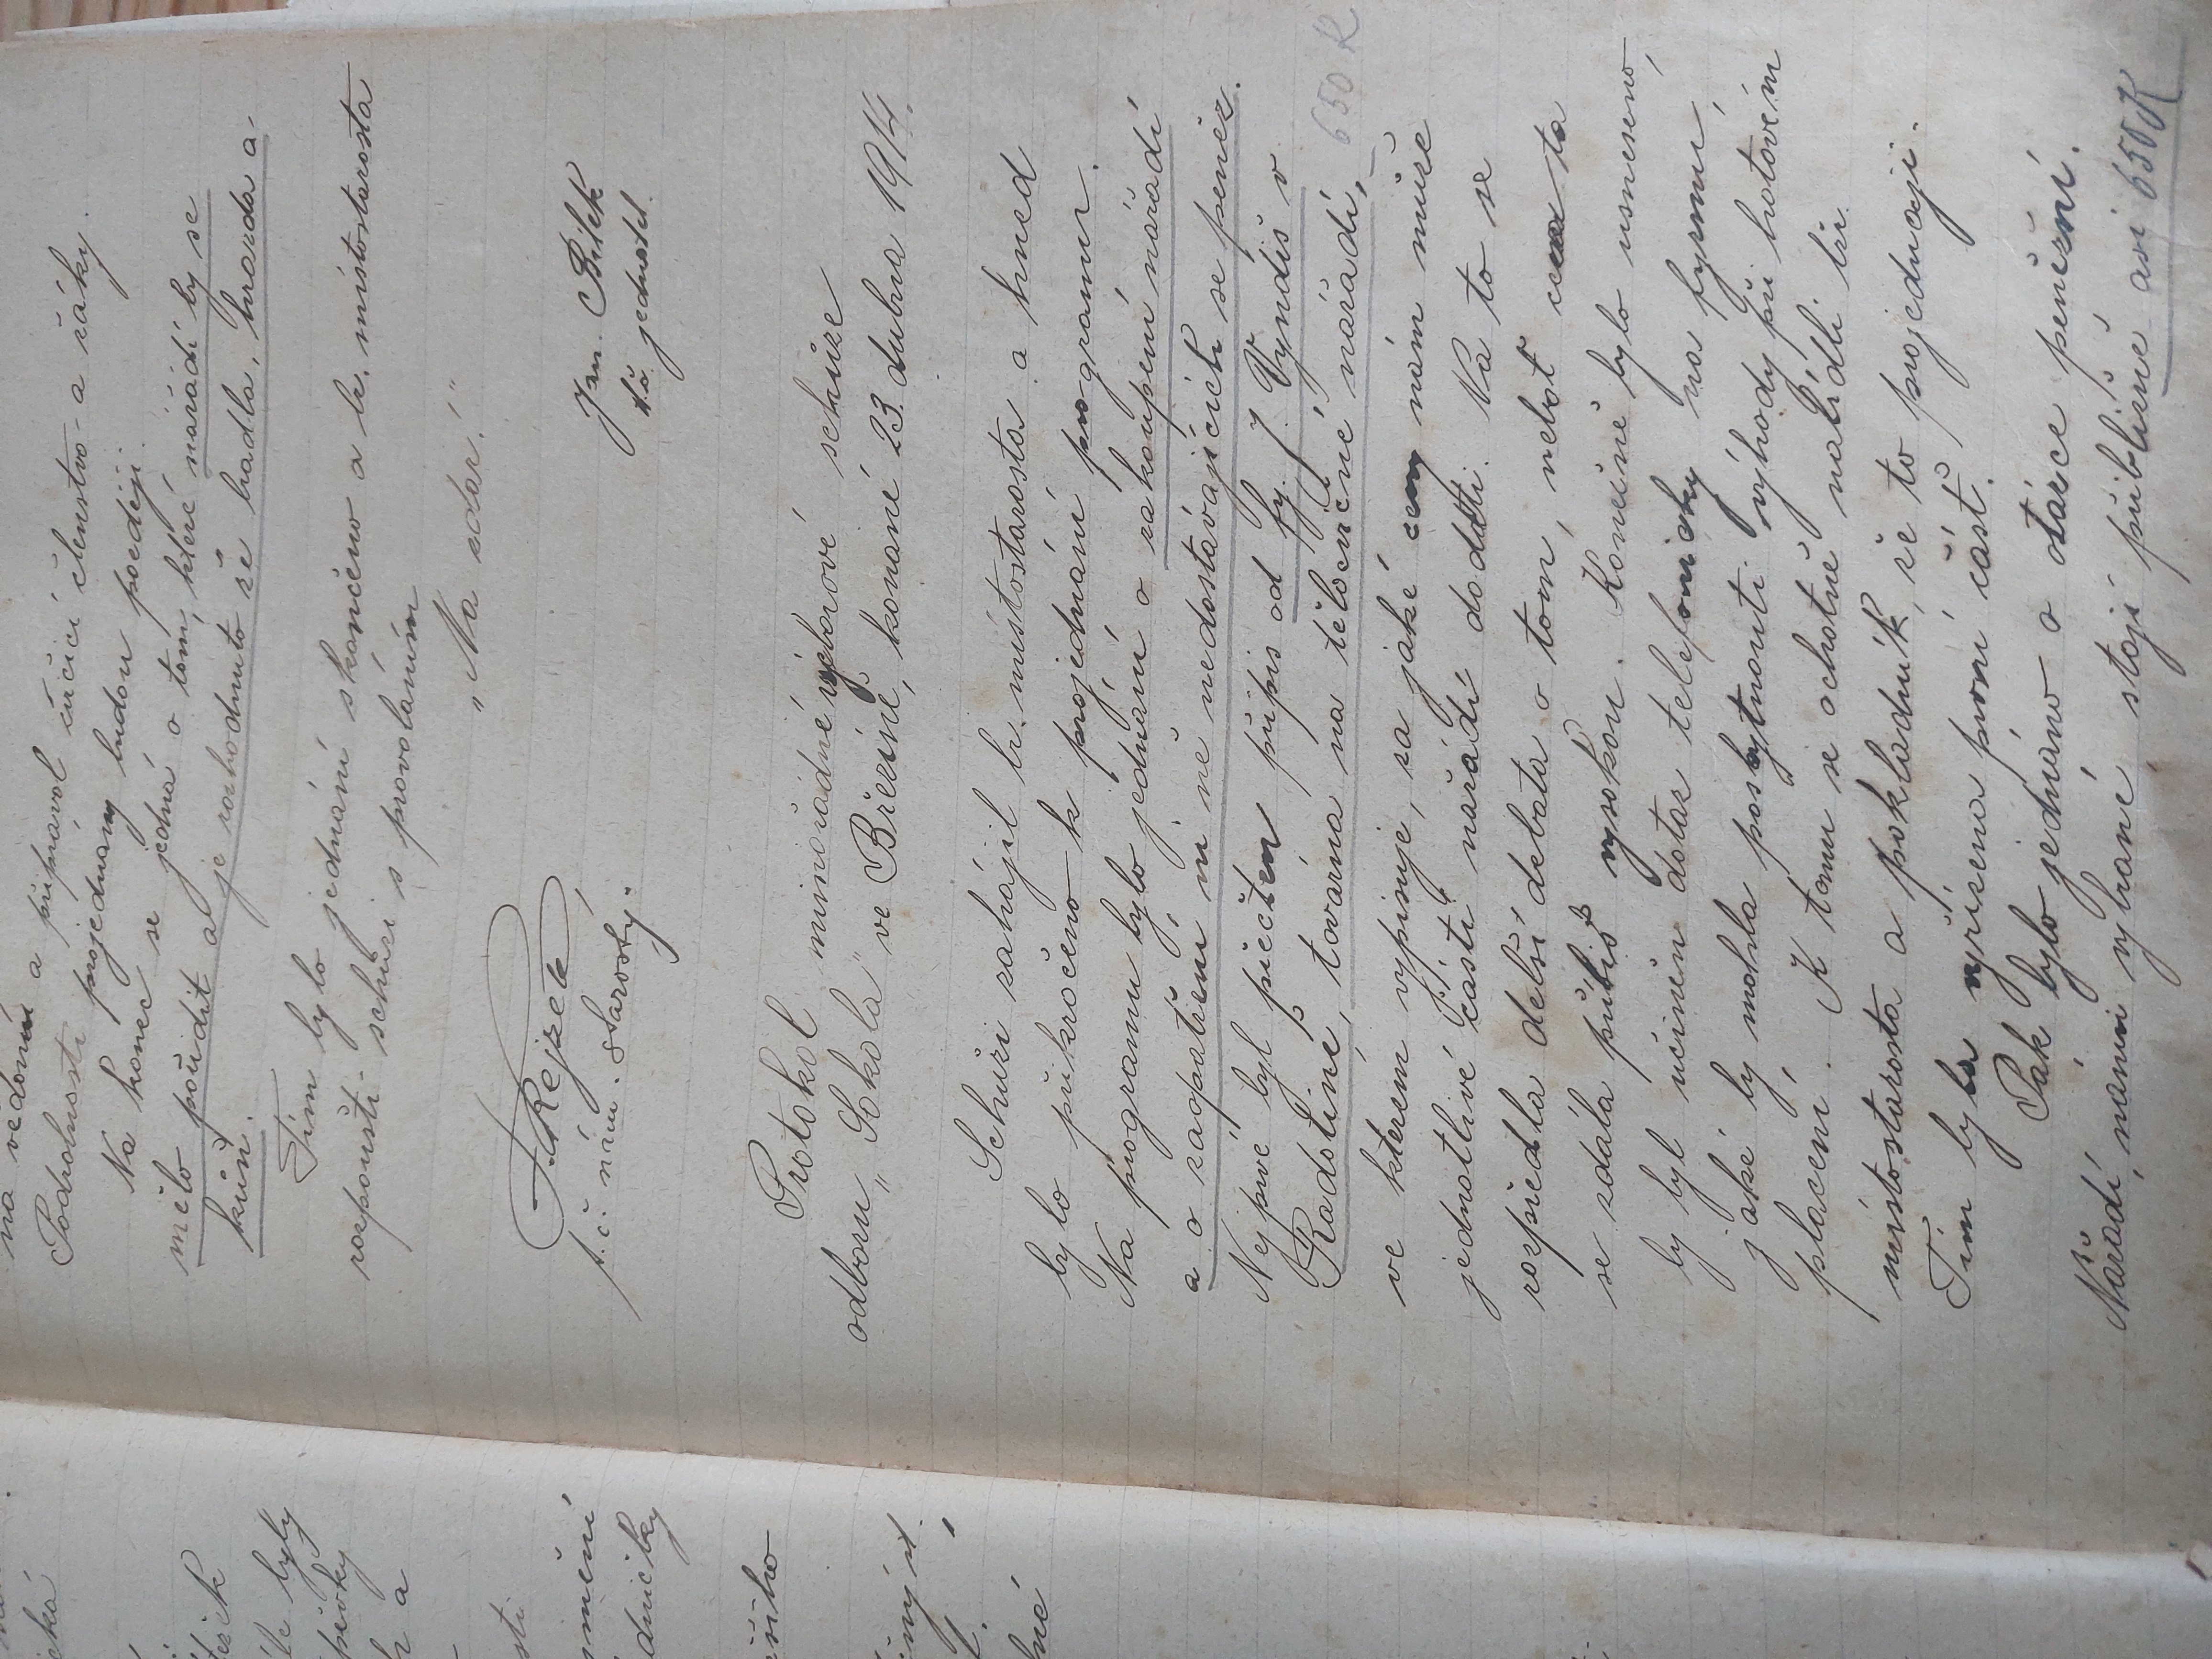 na vědomí a připravil cvičící členstvo - a žáky.
Podrobnosti projednány budou později.
Na konec se jedná o tom, které nářadí by se
mělo pořídit a je rozhodnuto že badla, hrazda a -
kůň.
Tím bylo jednání skončeno a br. místostarosta
rozpouští schůzi s provoláním
„Na zdar!"
F. Rejzek
t. č. nám. starosty.
Jm. Bílek
t.č. jednatel.
Protokol mimořádné výborové schůze
odboru „Sokola" ve Březině, konané 23. dubna 1914.
Schůzi zahájil br. místostarosta a hned
bylo přikročeno k projednání programu.
Na programu bylo jednání o zakoupení nářadí
a o zaopatření ní ně nedostávajících se peněz.
Nejprve byl přečten přípis od fy. J Vyndiš v
Radotíně, továrna na tělocvičné nářadí, 650 K
ve kterém vypisuje, za jaké ceny nám může
jednotlivé části nářadí dodati. Na to se
rozpředla delší debata o tom, neboť cena ta
se zdála příliš vysokou. Konečně bylo usneseno,
by byl učiněn dotaz telefonicky na fyrmě,
jaké by mohla poskytnouti výhody při hotovém
placení. K tomu se ochotně nabídli br.
místostarosta a pokladník, že to projednají.
Tím byla vyřízena první část.
Pak bylo jednáno o otázce peněžní.
Nářadí, námi vybrané, stojí přibližně asi 650 K